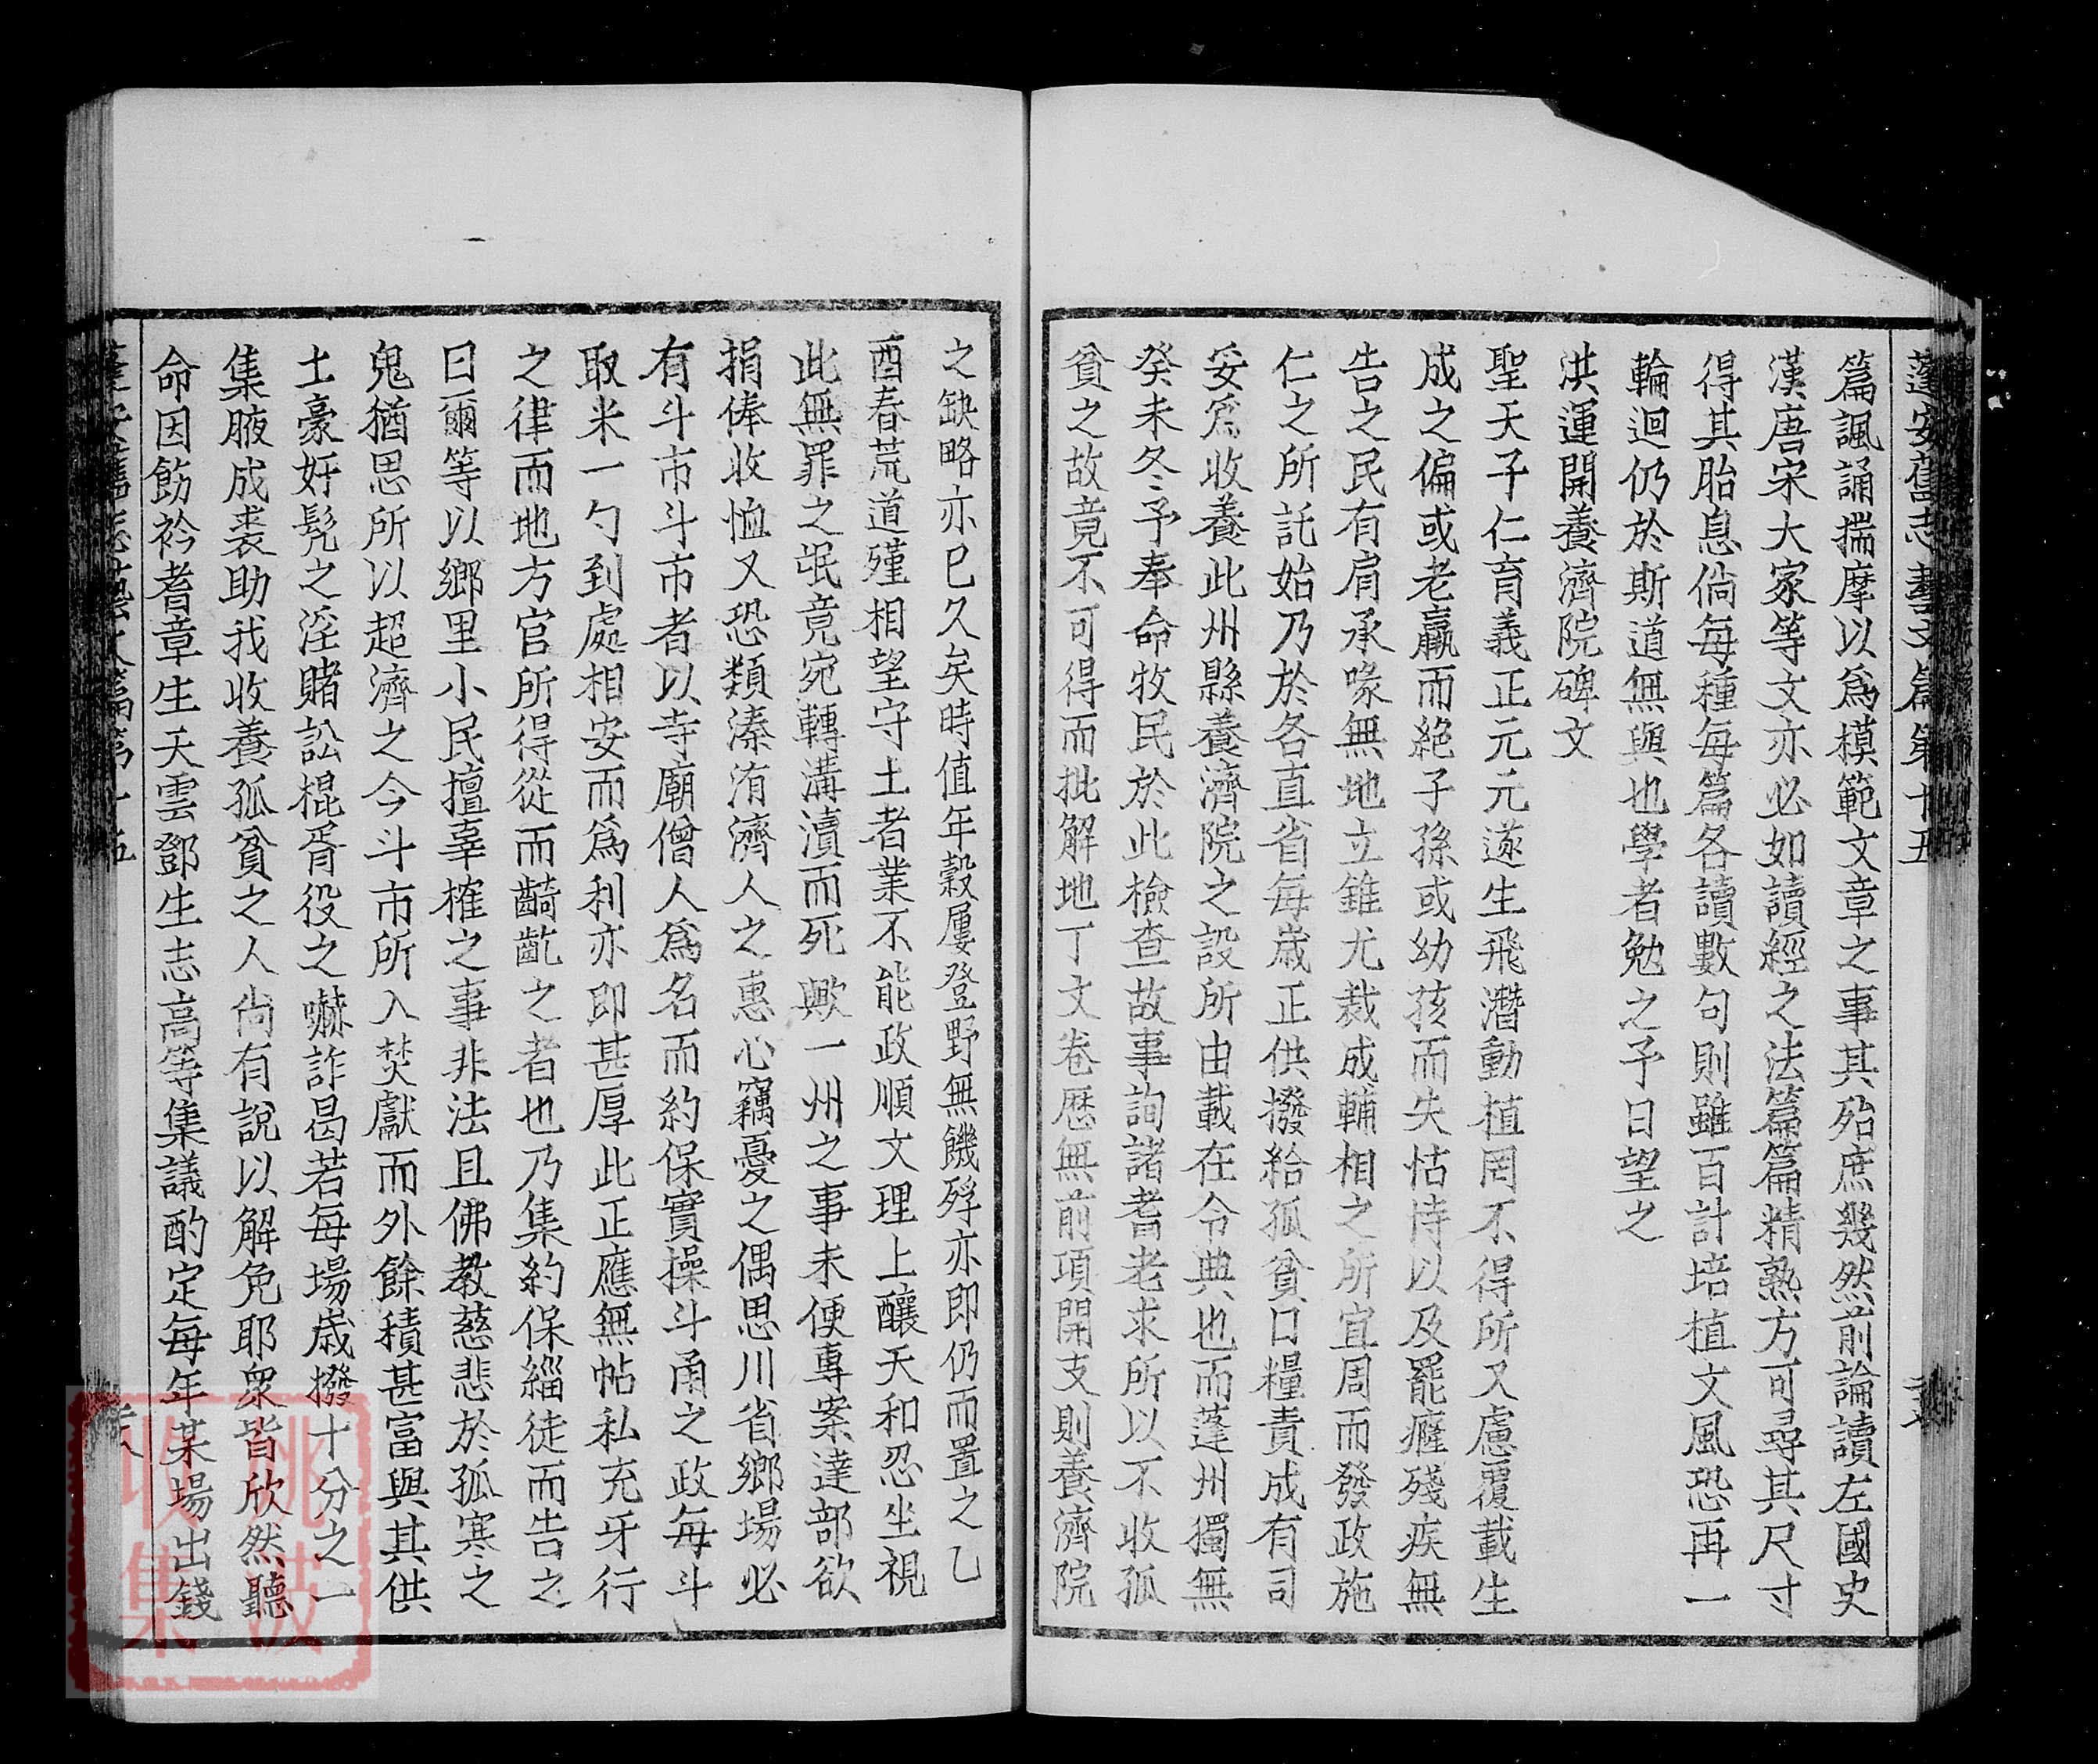 蓬安舊志藝文篇第十五
篇諷誦揣摩以爲模範文章之事其殆庶幾然前論讀左國史
漢唐宋大家等文亦必如讀經之法篇篇精熟方可尋其尺寸
得其胎息倘每種每篇各讀數句則雖百計培植文風恐再一
輪迴仍於斯道無與也學者勉之予日望之
洪運開養濟院碑文
聖天子仁育義正元元遂生飛潛動植罔不得所又慮覆載生
成之偏或老羸而絕子孫或幼孩而失怙恃以及罷癃殘疾無
告之民有肩承喙無地立錐尤裁成輔相之所宜周而發政施
仁之所託始乃於各直省每歲正供撥給孤貧口糧責成有司
妥爲收養此州縣養濟院之設所由載在令典也而蓬州獨無
癸未冬予奉命牧民於此檢查故事詢諸耆老求所以不收孤
貧之故竟不可得而批解地丁文卷歷無前項開支則養濟院
之缺略亦巳久矣時值年穀屢登野無饑殍亦即仍而置之乙
酉春荒道殣相望守土者業不能政順文理上釀天和忍坐視
此無罪之氓竟宛轉溝瀆而死歟一州之事未便專案達部欲
捐俸收恤又恐類溱洧濟人之惠心竊憂之偶思川省鄉場必
有斗市斗市者以寺廟僧人爲名而約保實操斗甬之政每斗
取米一勺到處相安而爲利亦即甚厚此正應無帖私充牙行
之律而地方官所得從而齮齕之者也乃集約保緇徒而告之
曰爾等以鄉里小民擅辜榷之事非法且佛教慈悲於孤寒之
鬼猶思所以超濟之今斗市所入焚獻而外餘積甚富與其供
土豪奸髡之淫賭訟棍胥役之嚇詐曷若每場歲撥十分之一
集腋成裘助我收養孤貧之人尙有說以解免耶衆皆欣然聽
命因飭衿耆章生天雲鄧生志高等集議酌定每年某場出錢